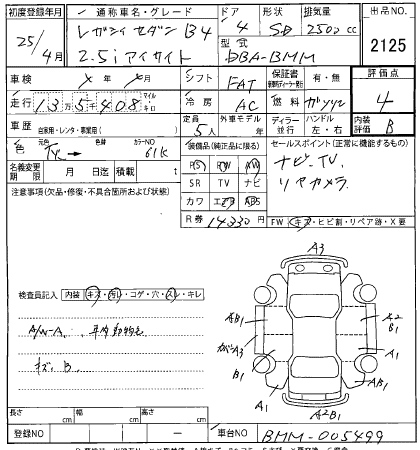 初度登録年月 通称車名・グレード ドア 形状 排気量 出品NO.
25/4月 レガシィセダン B4 4 SD 2500 cc 2125
2.5i アイサイト 型式 DBA-BMM
車検 年 月 シフト FAT 保証書 有・無 評価点
走行 13万5千408 マイル キロ 冷房 AC 燃料 ガソリン 4
車歴 自家用・レンタ・事業用( ) 定員 5人 外車モデル 年 ディーラー 並行 ハンドル 左・右 内装評価 B
色 元色 色替 カラーNO 61K
装備品(純正品に限る) セールスポイント(正常に機能するもの)
PS PW AW ナビ.TV.
名義変更期限 月 日迄 積載 t SR TV ナビ リヤカメラ.
注意事項(欠品・修復・不具合箇所および状態) カワ エアB ABS
R券 14330円 FW キズ・ヒビ割・リペア跡・X要
検査員記入 内装 キズ・汚れ・コゲ・穴・スレ・キレ
A3
AB1 A2 B1
A3 A1
B1 A1 AB1
A2B1
キズ. B.
長さ cm 幅 cm 高さ cm
登録NO ー 車台NO BMM-005499